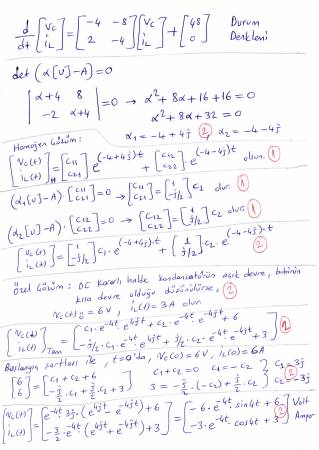 d/dt [Vc; iL] = [-4 -8; 2 -4] [Vc; iL] + [48; 0] Durum Denklemi
det (α[U]-A) = 0
|α+4 8; -2 α+4| = 0 → α²+8α+16+16 = 0
α²+8α+32 = 0
α₁ = -4+4j ② α₂ = -4-4j
Homojen Çözüm:
[Vc(t); iL(t)]H = [C11; C21] e^(-4+4j)·t + [C12; C22] e^(-4-4j)·t olur. ①
(α₁[U]-A)·[C11; C21] = 0 → [C11; C21] = [1; -j/2] C₁ olur. ①
(α₂[U]-A)·[C12; C22] = 0 → [C12; C22] = [1; j/2] C₂ olur. ①
[Vc(t); iL(t)] = [1; -j/2] C₁·e^(-4+4j)·t + [1; j/2] C₂·e^(-4-4j)·t ②
Özel Çözüm: DC Kararlı halde kondansatörün açık devre, bobinin
kısa devre olduğu düşünülürse, ②
Vc(t)ö = 6V, iL(t) = 3A olur.
[Vc(t); iL(t)]Tam = [C₁·e^-4t e^4jt + C₂·e^-4t·e^-4jt + 6; -j/2·C₁·e^-4t·e^4jt + j/2·C₂·e^-4t·e^-4jt + 3]
Başlangıç şartları ile, t=0'da, Vc(0) = 6V, iL(0) = 6A
[6; 6] = [C₁+C₂+6; -j/2·C₁+j/2·C₂+3] C₁+C₂ = 0 3 = -j/2·(-C₂)+j/2·C₂ C₁ = 3j C₂ = -3j ②
[Vc(t); iL(t)] = [e^-4t 3j·(e^4jt - e^-4jt)+6; -3/2·e^-4t·(e^4jt+e^-4jt)+3] = [-6·e^-4t·sin4t+6; -3·e^-4t·cos4t+3] ② Volt Amper